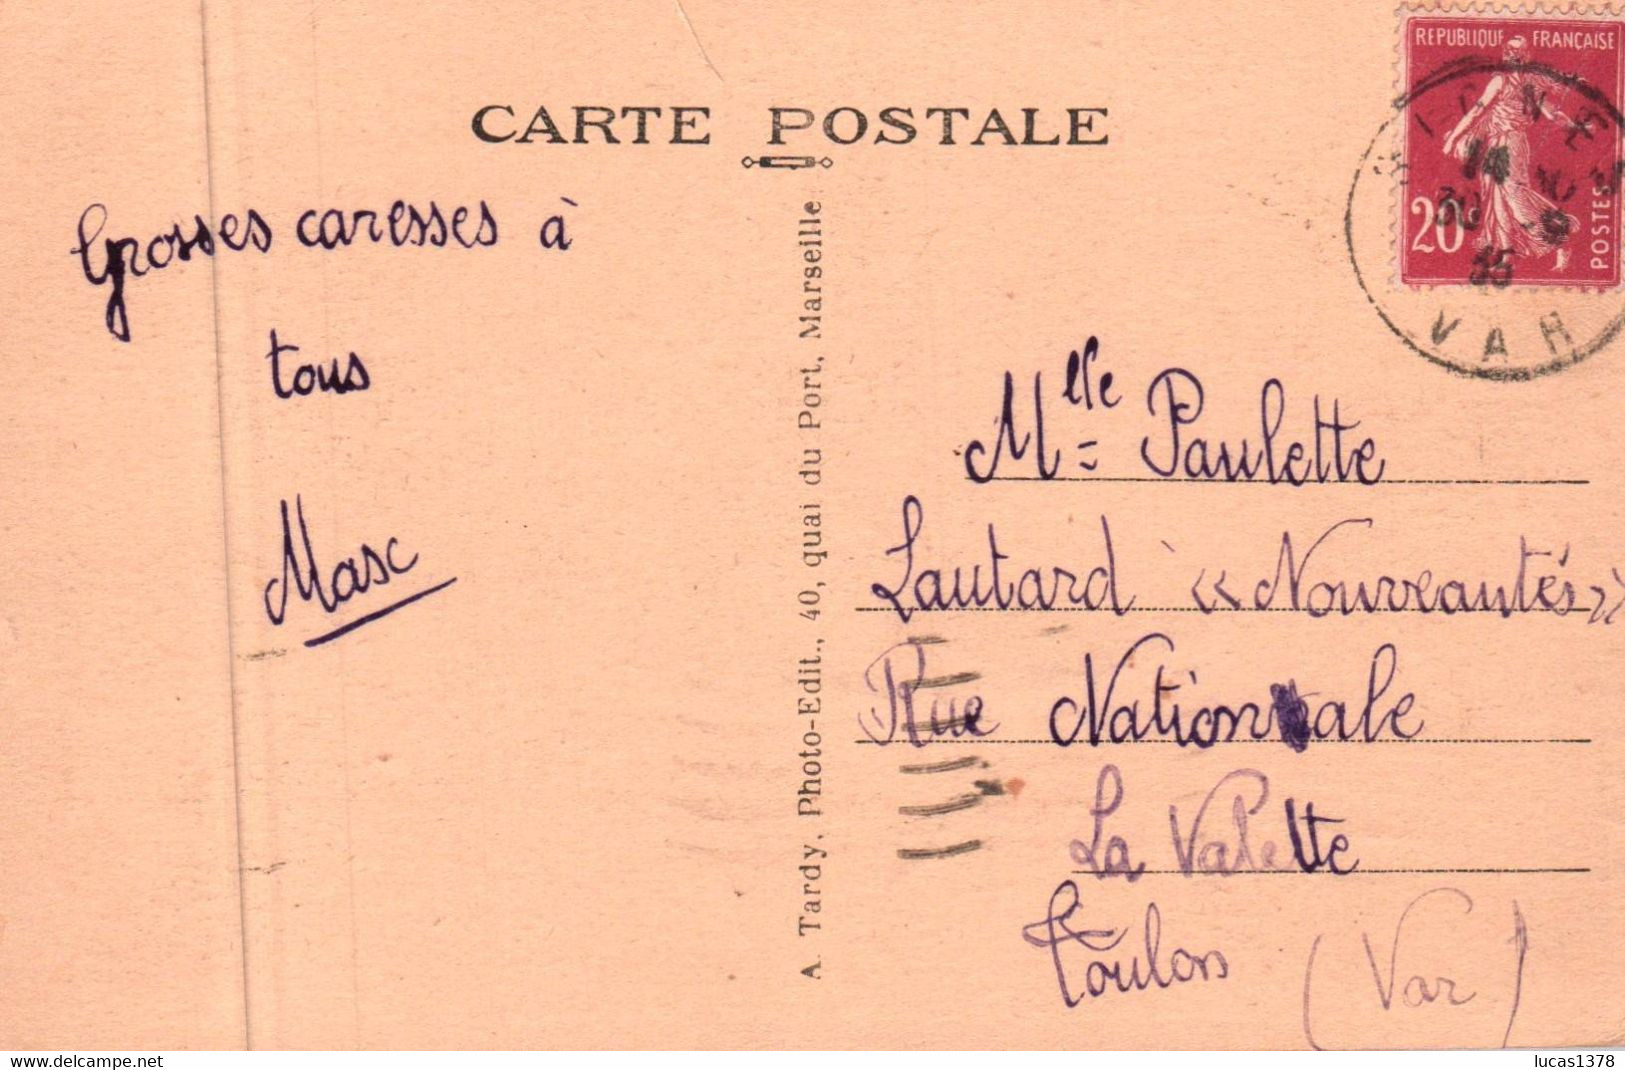 CARTE POSTALE
Grosses caresses à
tous
Masc
A. Tardy, Photo-Edit., 40, quai du Port, Marseille
REPUBLIQUE FRANÇAISE
20
POSTES
14 30
30 -9
35
VAR
Mlle Paulette
Lautard « Nouveautés »
Rue Nationale
La Valette
Toulon (Var)
delcampe.net
lucas1378